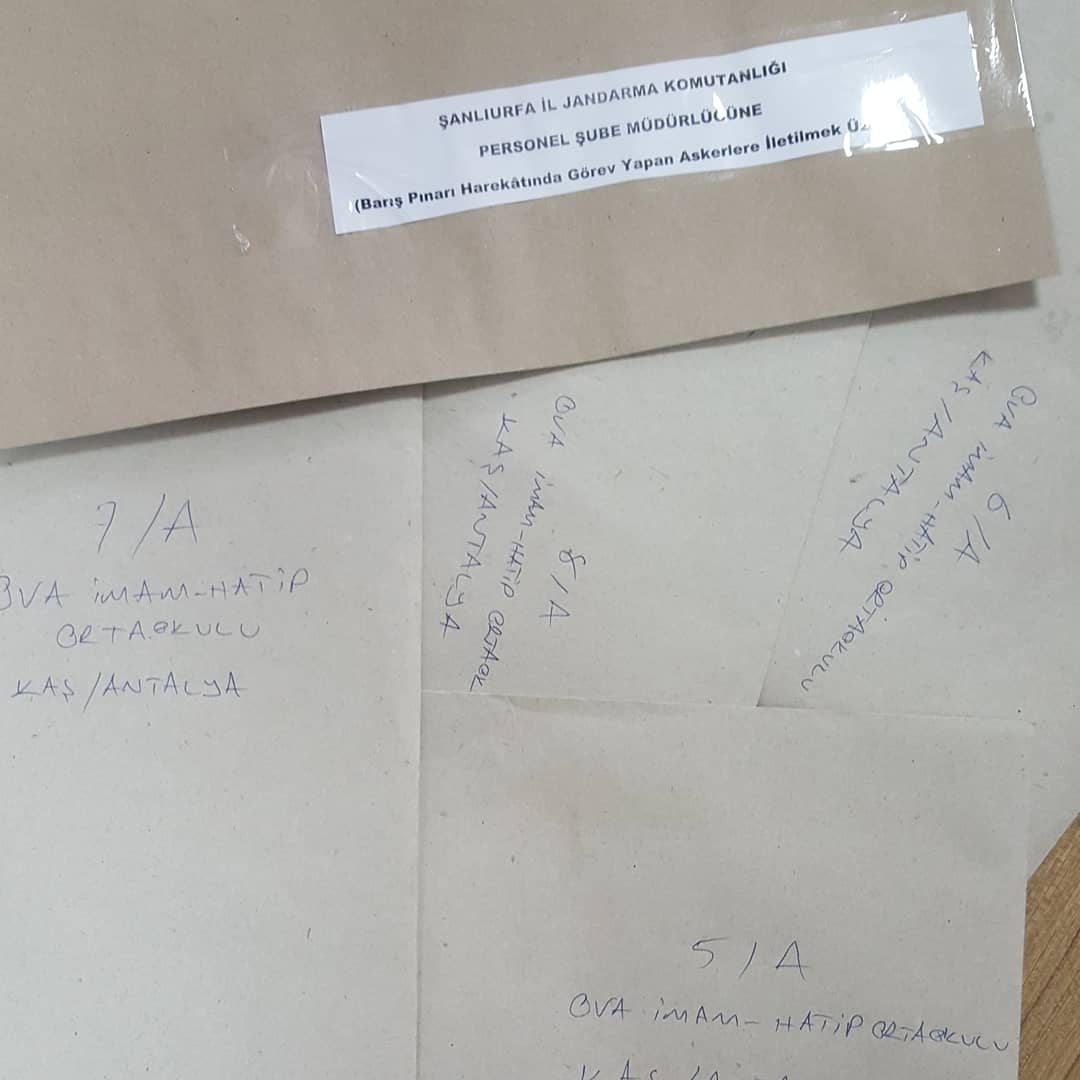 ŞANLIURFA İL JANDARMA KOMUTANLIĞI
PERSONEL ŞUBE MÜDÜRLÜĞÜNE
(Barış Pınarı Harekâtında Görev Yapan Askerlere İletilmek
7/A
OVA İMAM-HATİP
ORTAOKULU
KAŞ/ANTALYA
8/A
OVA İMAM-HATİP ORTAOK
KAŞ/ANTALYA
6/A
OVA İMAM-HATİP ORTAOKULU
KAŞ/ANTALYA
5/A
OVA İMAM-HATİP ORTAOKULU